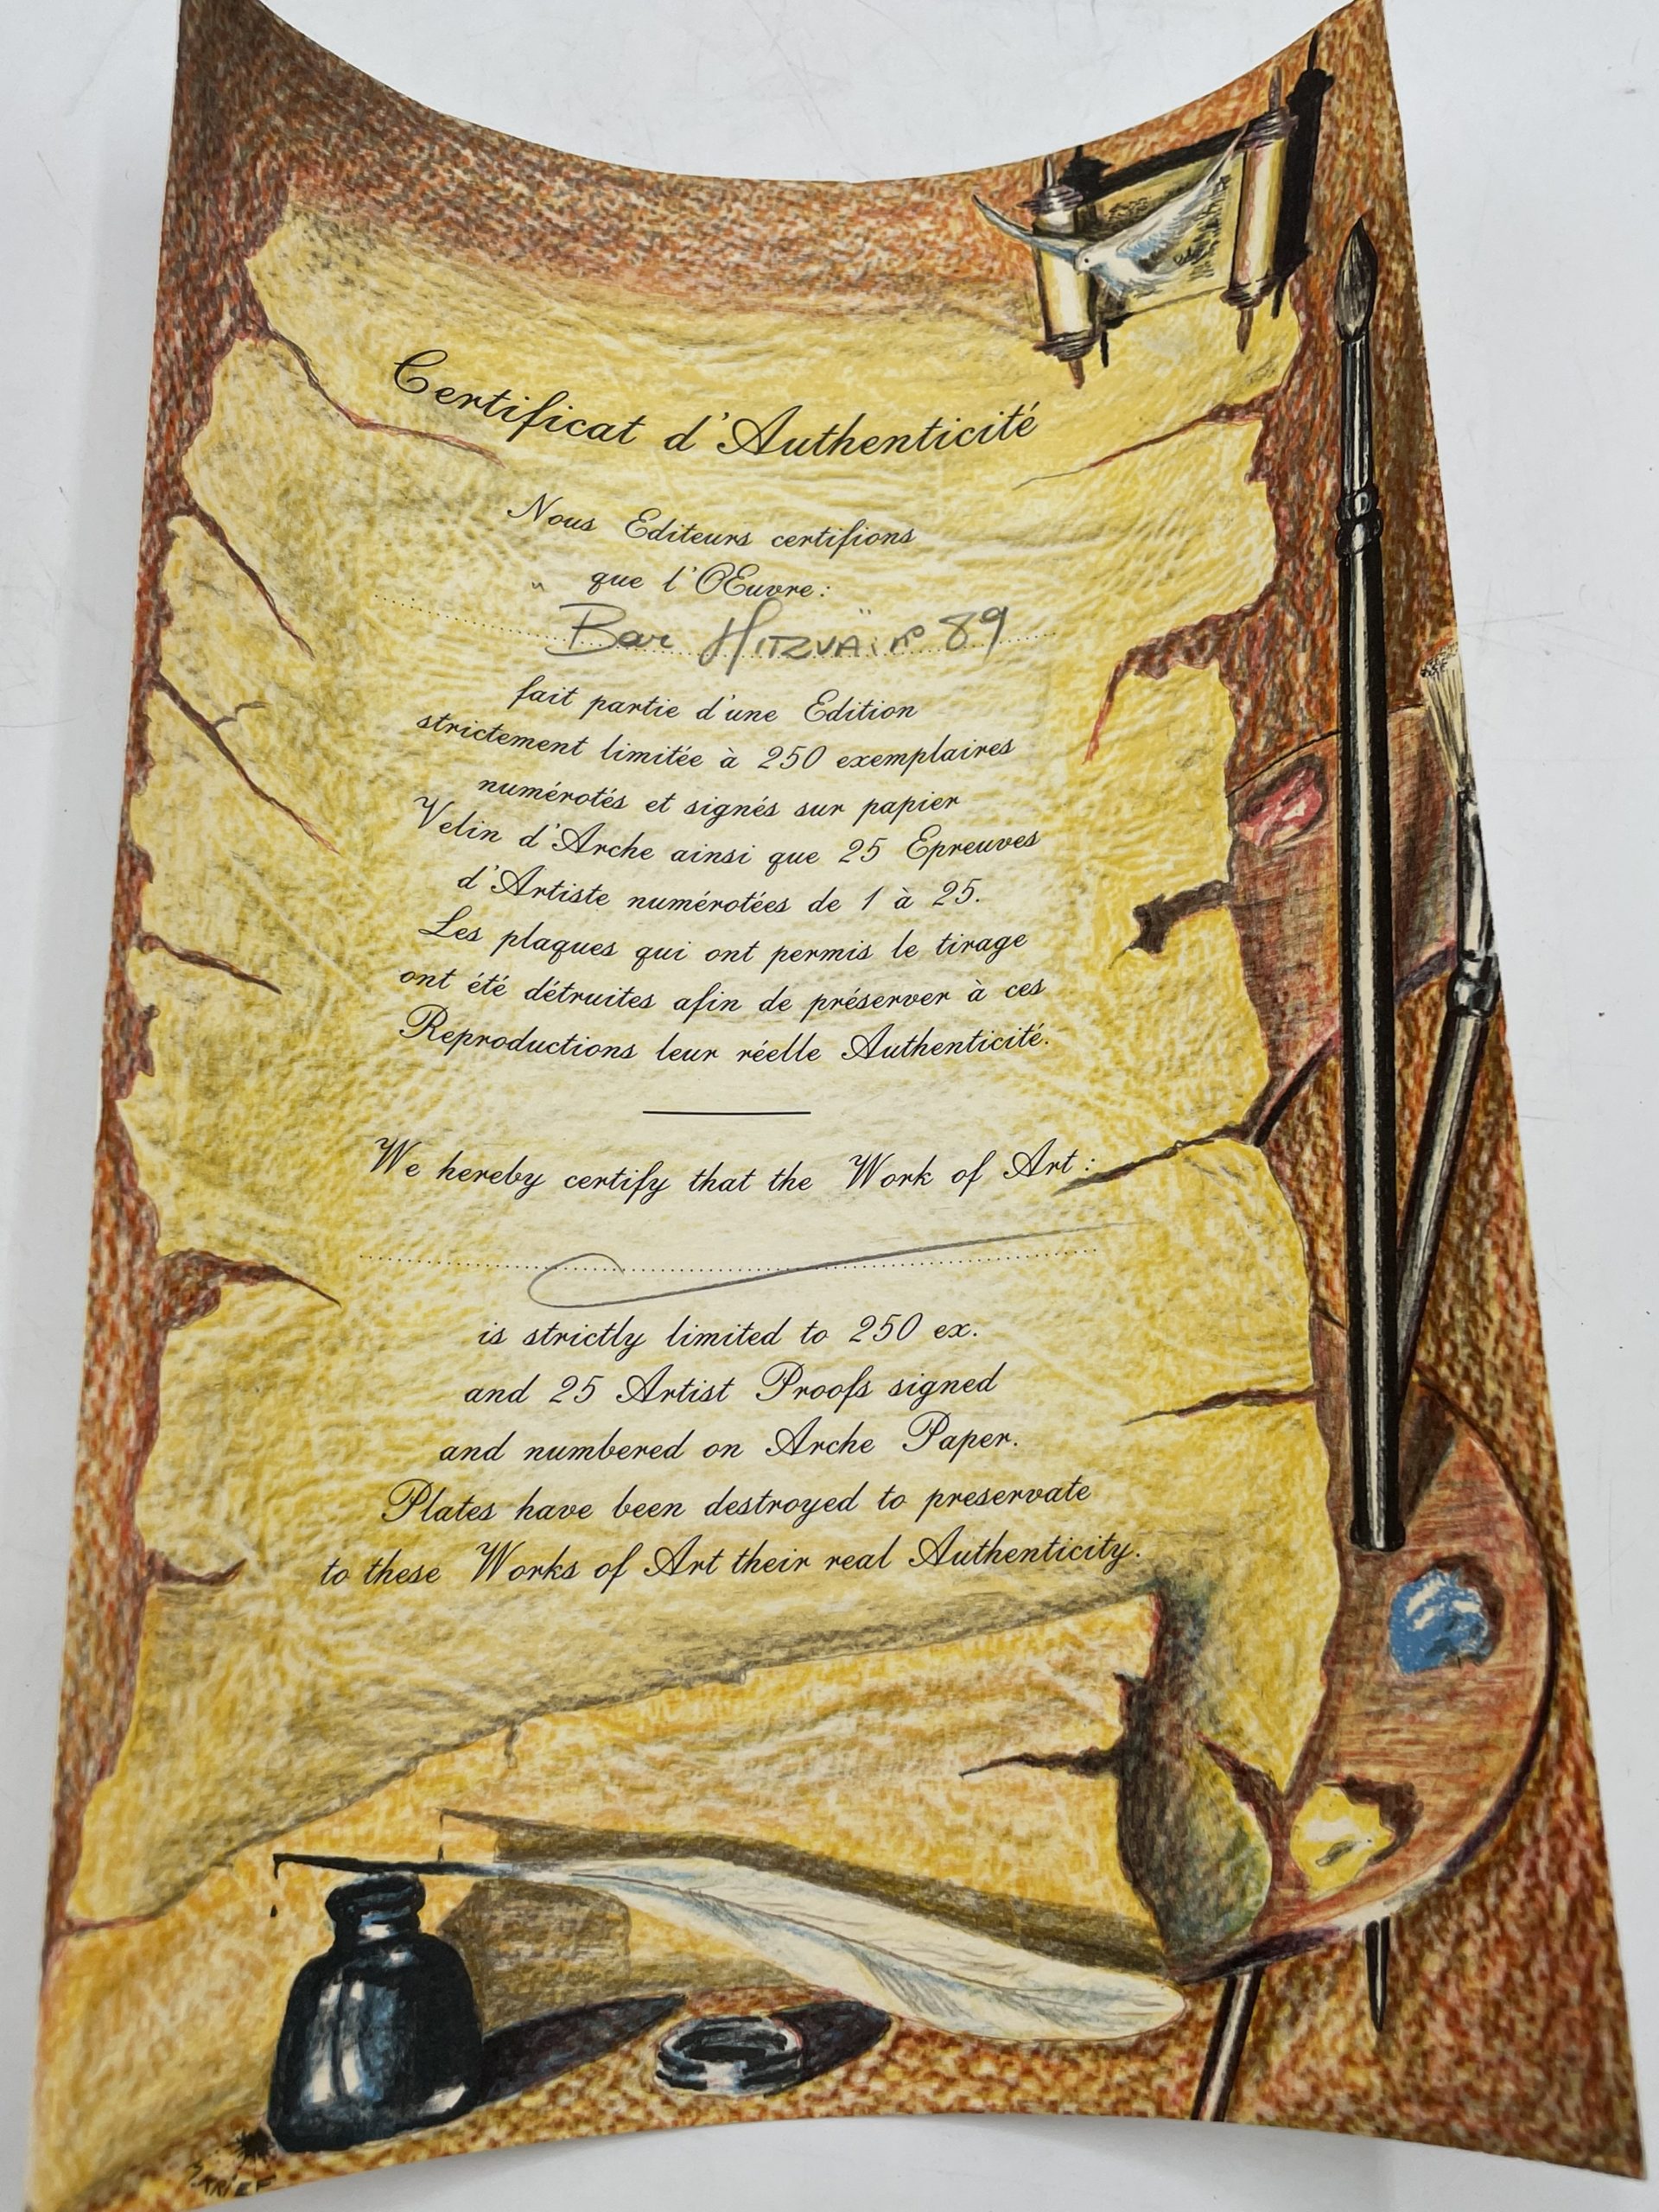 Certificat d'Authenticité
Nous Editeurs certifions
que l'Œuvre:
" Bar Mitzva " n° 89
fait partie d'une Edition
strictement limitée à 250 exemplaires
numérotés et signés sur papier
Velin d'Arche ainsi que 25 Epreuves
d'Artiste numérotées de 1 à 25.
Les plaques qui ont permis le tirage
ont été détruites afin de préserver à ces
Reproductions leur réelle Authenticité.
We hereby certify that the Work of Art:
is strictly limited to 250 ex.
and 25 Artist Proofs signed
and numbered on Arche Paper.
Plates have been destroyed to preservate
to these Works of Art their real Authenticity.
KRIEF